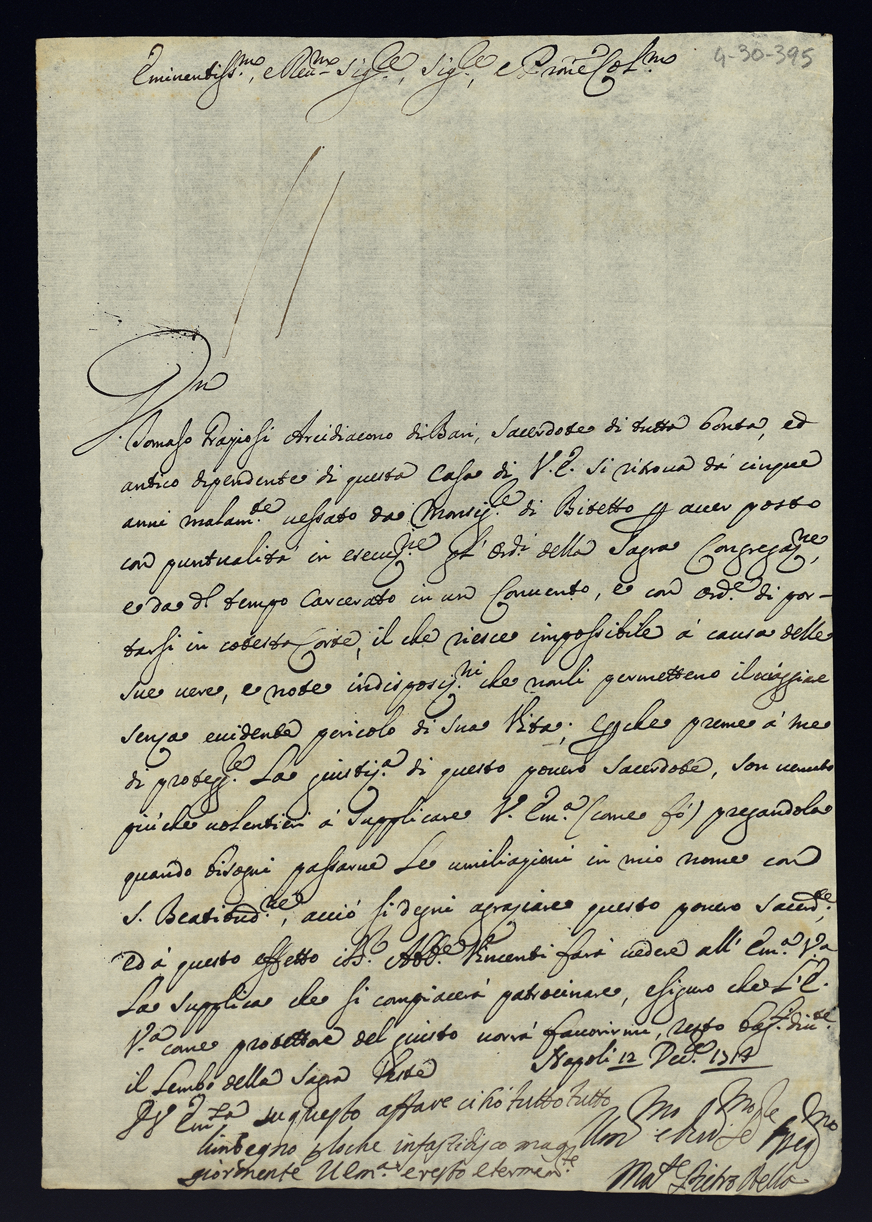 4-30-395
Eminentiss.mo, e Reu.mo Sig.re, Sig.re, e P.rone Col.mo
Dn
Tomaso Graziosi Arcidiacono di Bari, Sacerdote di tutta bontà, ed
antico dipendente di questa Casa di V.E. si ritroua da' cinque
anni malam.te uessato da Monsig.re di Bitetto p auer posto
con puntualità in esecuz.ne gl' ord.i della Sagra Congregaz.ne,
e da d.l tempo Carcerato in un Conuento, e con ord.e di por-
tarsi in cotesta Corte, il che riesce impossibile à causa delle
sue uere, e note indisposiz.ni che non li permetteno il uiaggiare
senza euidente pericolo di sua Vita; E p che preme à me
di proteg.re La giustiz.a di questo pouero Sacerdote, son uenuto
più che uolentieri à Supplicare V. Em.a (come fò) pregandola
quando bisogni passarne Le umiliazioni in mio nome con
S. Beatitud.ne, acciò si degni agraziare questo pouero Sacerd.te,
ed à questo effetto il S.r Abb.e Vincenti farà uedere all' Em.a V.a
La supplica che si compiacerà patrocinare, e siguro che L'E.
V.a come protettore del giusto uorrà fauorirmi, resto bag.
il Lembo della Sagra Veste Napoli 12 Dec.e
V Em.za su questo affare ci hò tutto tutto
l'impegno p lo che infastidisco mag-
giormente V Em.a e resto eternam.te
Um.mo e
Mad.e Pietro Stella